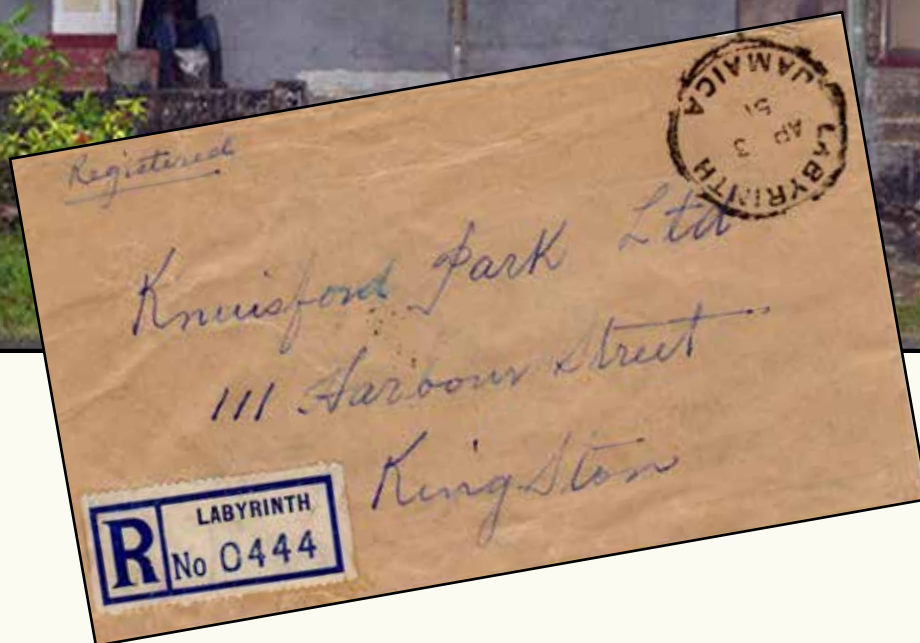 Registered
LABYRINTH
JAMAICA
AP 3
51
Knuisford Park Ltd
111 Harbour Street
Kingston
R
LABYRINTH
No 0444